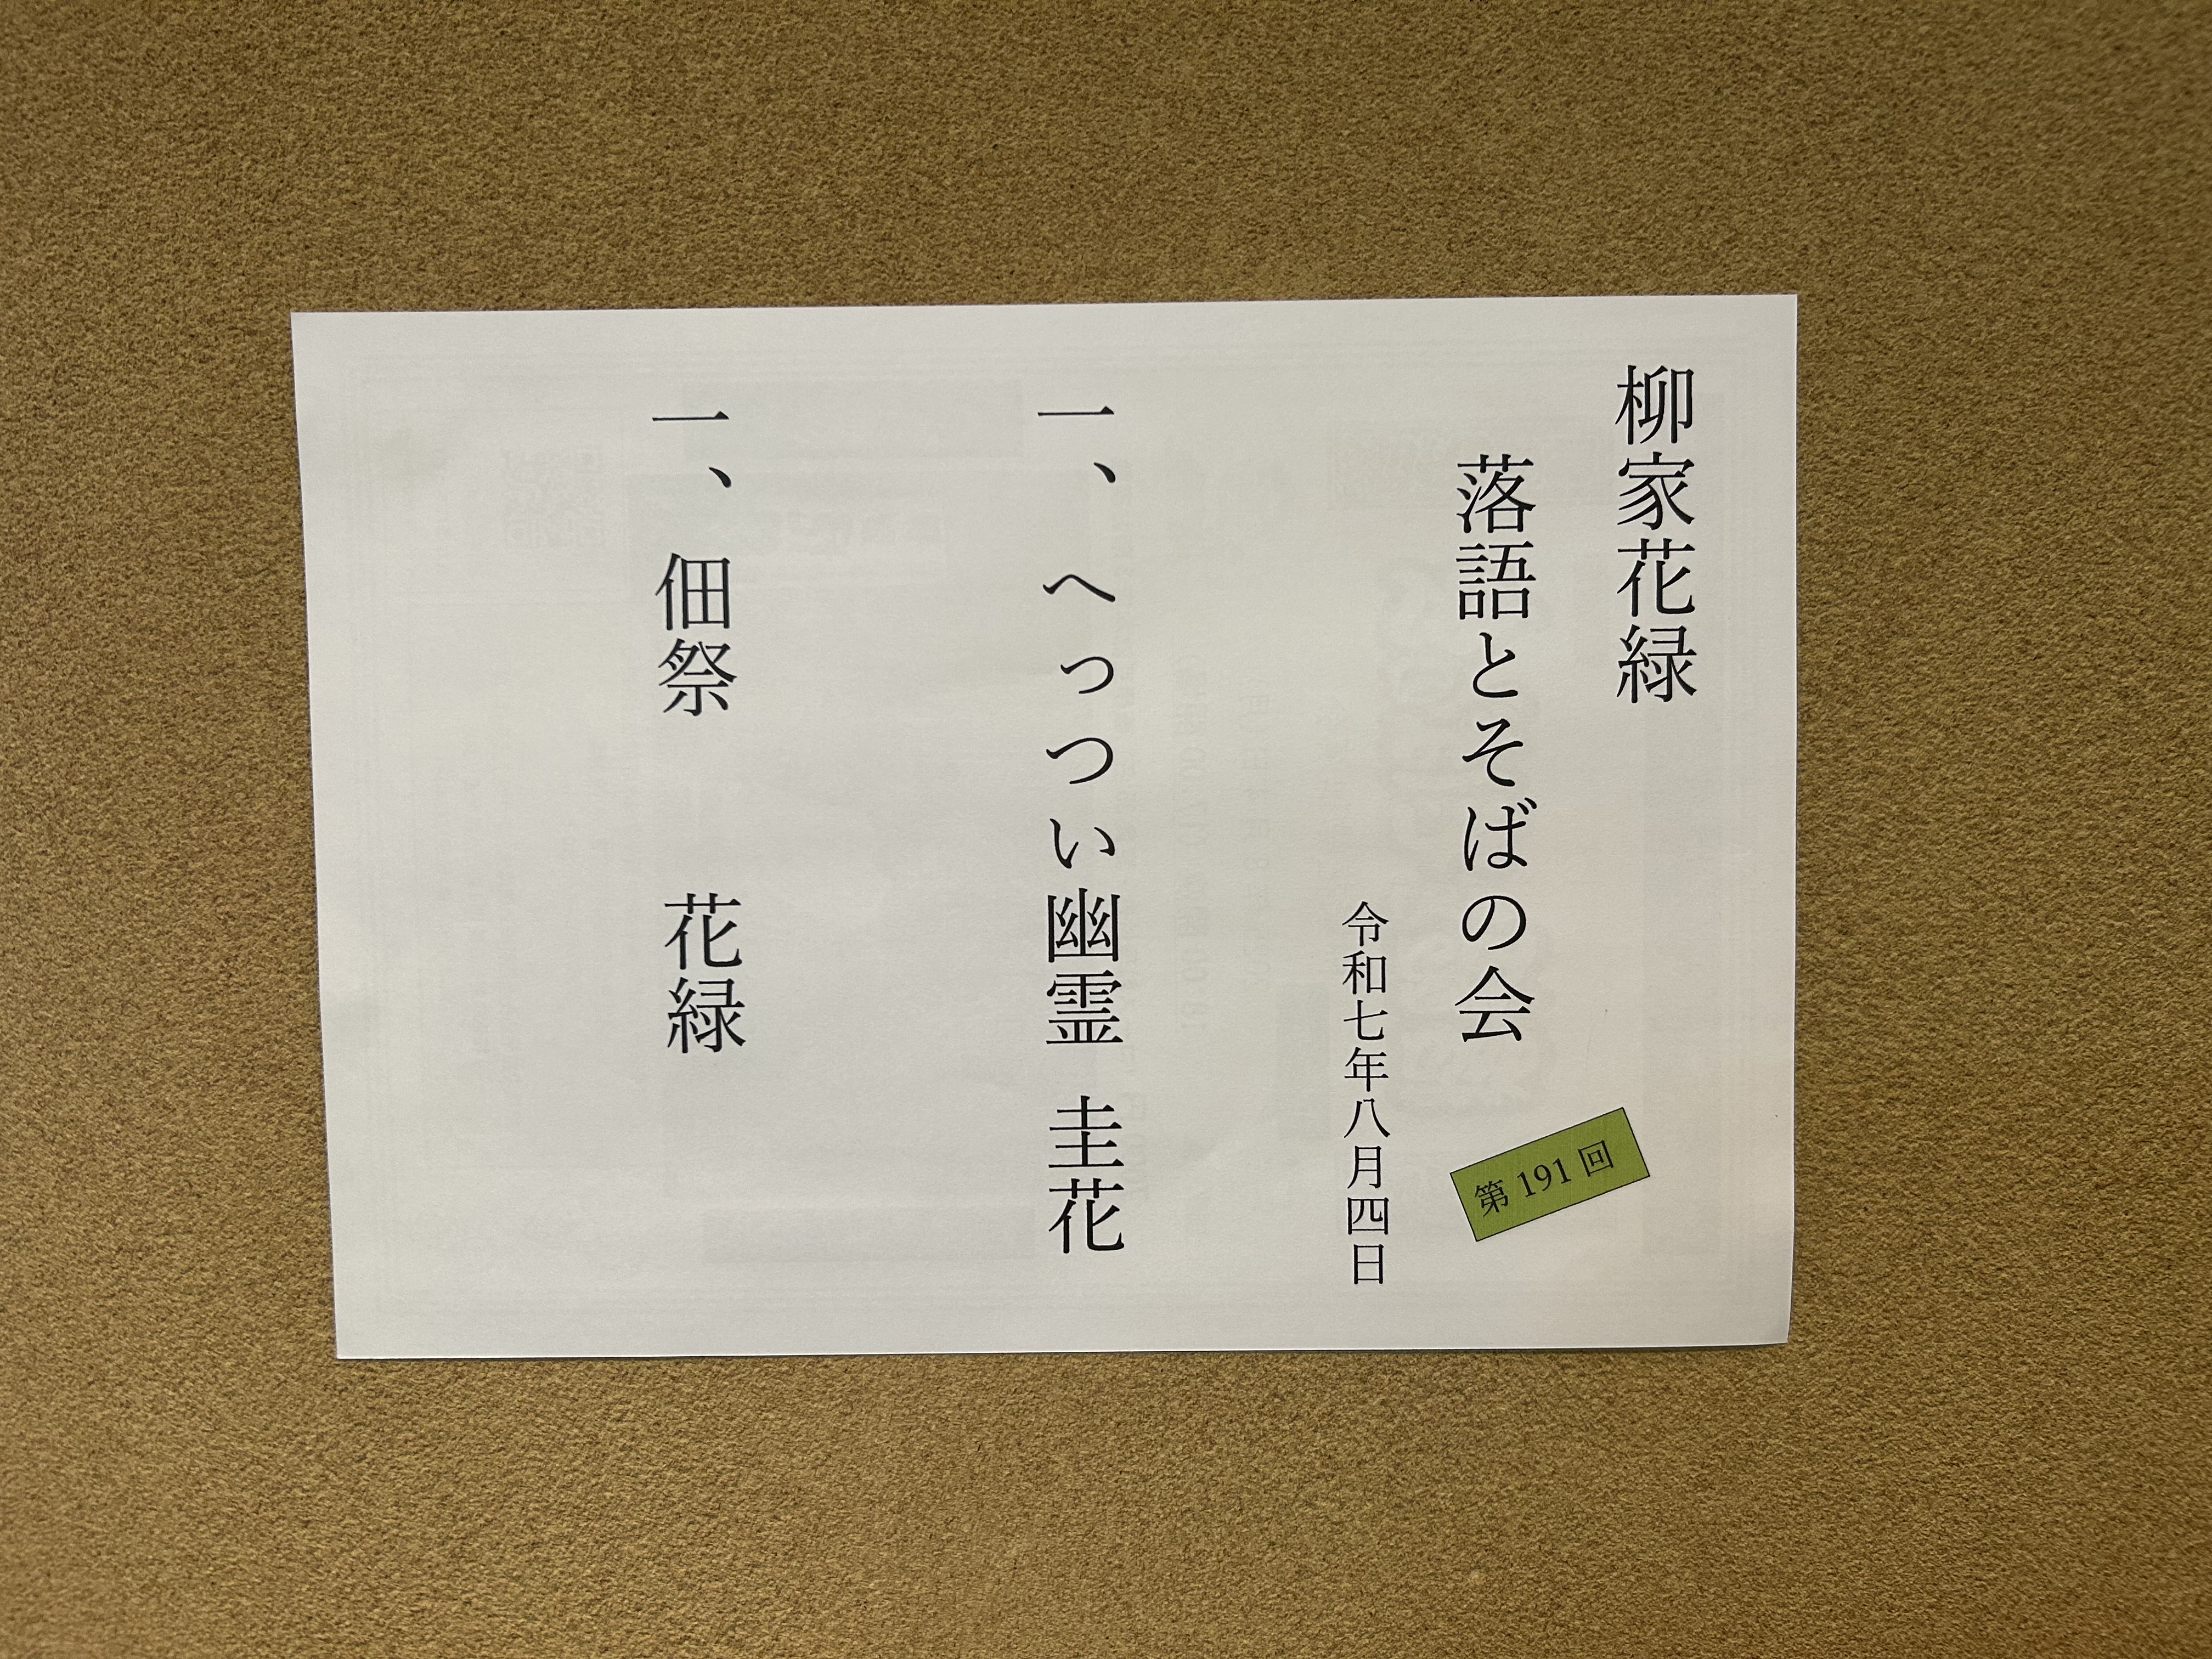 柳家花緑
落語とそばの会
第191回
令和七年八月四日
一、へっつい幽霊 圭花
一、佃祭 花緑